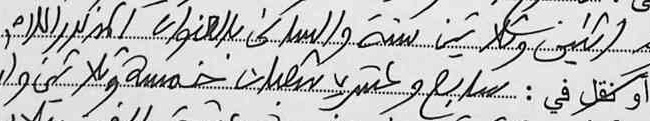 اثنين وثلاثين سنة والساكن بالعنوان المذكور اعلاه
أو نقل في : سابع وعشرين شعبان خمسة وثلاثين وا